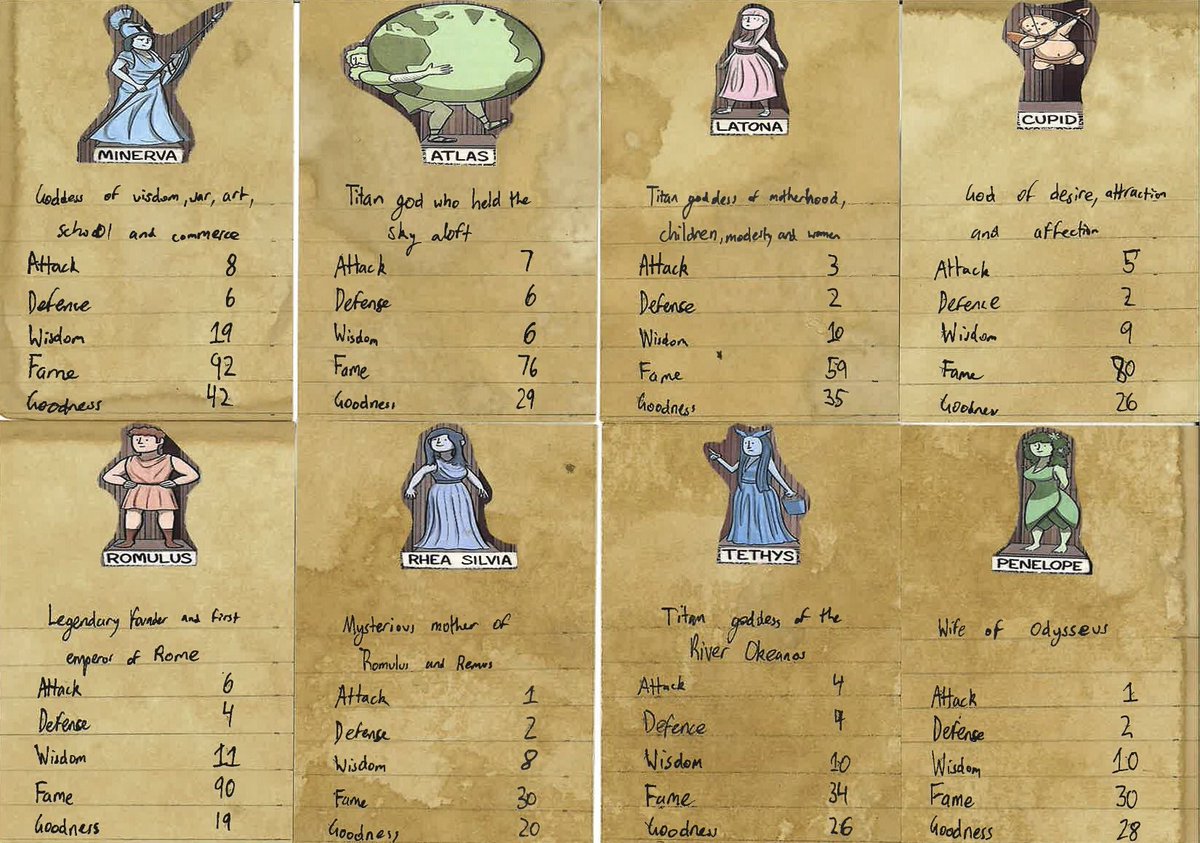 MINERVA
Goddess of wisdom, war, art,
school and commerce
Attack 8
Defence 6
Wisdom 19
Fame 92
Goodness 42
ATLAS
Titan god who held the
sky aloft
Attack 7
Defense 6
Wisdom 6
Fame 76
Goodness 29
LATONA
Titan goddess of motherhood,
children, modesty and women
Attack 3
Defense 2
Wisdom 10
Fame 59
Goodness 35
CUPID
God of desire, attraction
and affection
Attack 5
Defence 2
Wisdom 9
Fame 80
Goodness 26
ROMULUS
Legendary founder and first
emperor of Rome
Attack 6
Defense 4
Wisdom 11
Fame 90
Goodness 19
RHEA SILVIA
Mysterious mother of
Romulus and Remus
Attack 1
Defense 2
Wisdom 8
Fame 30
Goodness 20
TETHYS
Titan goddess of the
River Okeanos
Attack 4
Defence 4
Wisdom 10
Fame 34
Goodness 26
PENELOPE
Wife of Odysseus
Attack 1
Defense 2
Wisdom 10
Fame 30
Goodness 28